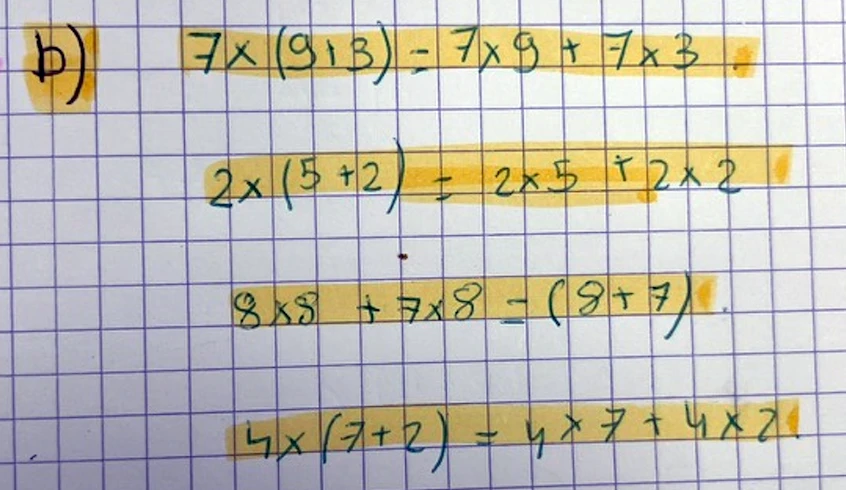 b) 7×(9+3) = 7×9 + 7×3.
2×(5+2) = 2×5 + 2×2
8×8 + 7×8 = (8+7).
4×(7+2) = 4×7 + 4×2.